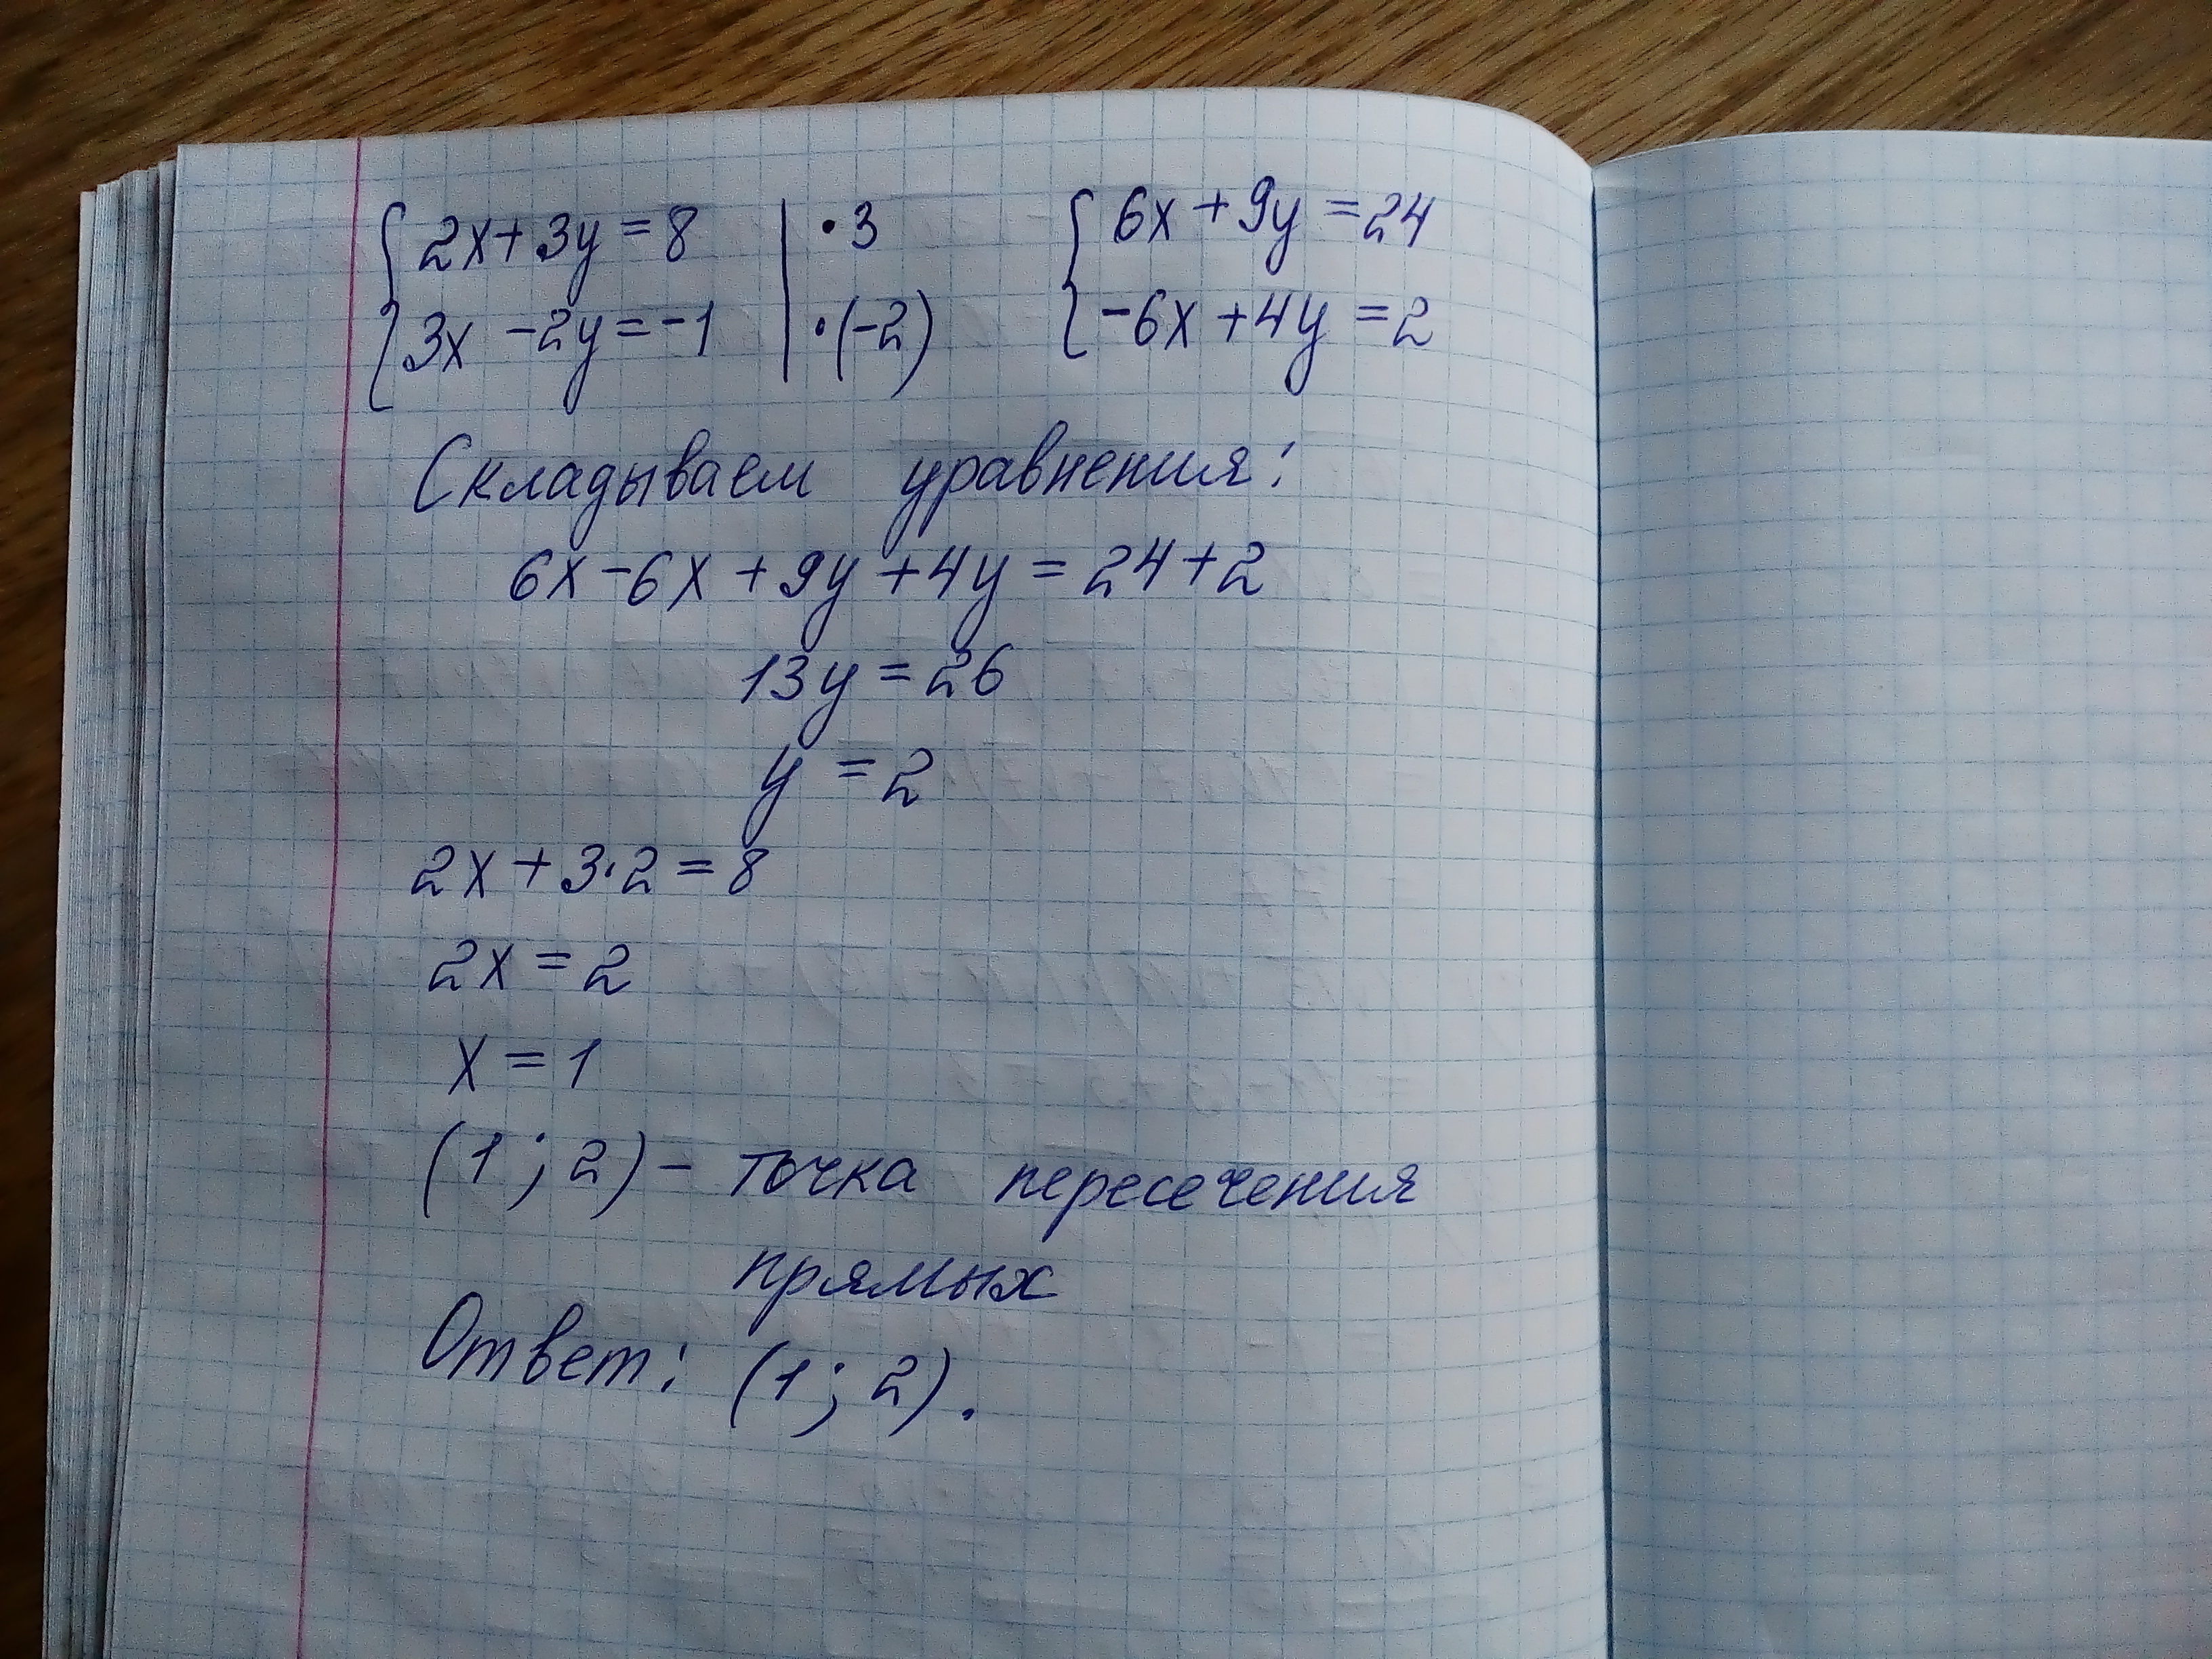 { 2x + 3y = 8 | · 3 { 6x + 9y = 24
{ 3x - 2y = -1 | · (-2) { -6x + 4y = 2
Складываем уравнения:
6x - 6x + 9y + 4y = 24 + 2
13y = 26
y = 2
2x + 3·2 = 8
2x = 2
x = 1
(1 ; 2) - точка пересечения
прямых
Ответ: (1 ; 2).